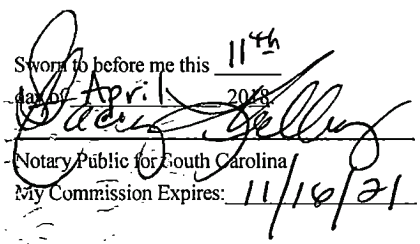 Sworn to before me this 11th
day of April 2018.
Notary Public for South Carolina
My Commission Expires: 11/16/21